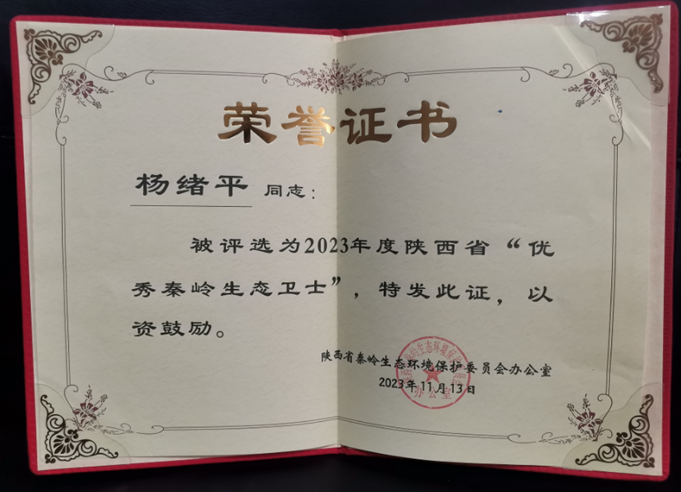 荣誉证书
杨绪平 同志：
被评选为2023年度陕西省“优
秀秦岭生态卫士”，特发此证，以
资鼓励。
陕西省秦岭生态环境保护委员会办公室
2023年11月13日
办公室